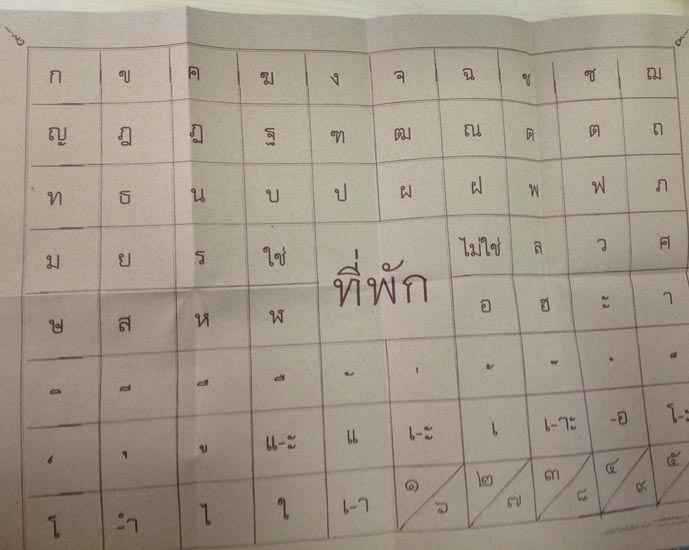 ก ข ค ฆ ง จ ฉ ช ซ ฌ
ญ ฎ ฏ ฐ ฑ ฒ ณ ด ต ถ
ท ธ น บ ป ผ ฝ พ ฟ ภ
ม ย ร ใช่ ไม่ใช่ ล ว ศ
ที่พัก
ษ ส ห ฬ อ ฮ ะ า
ิ ี ึ ื ั ่ ้ ๊ ๋ ็
ุ ู แ-ะ แ เ-ะ เ เ-าะ -อ โ-ะ
โ -ำ ไ ใ เ-า ๑ ๖ ๒ ๗ ๓ ๘ ๔ ๙ ๕